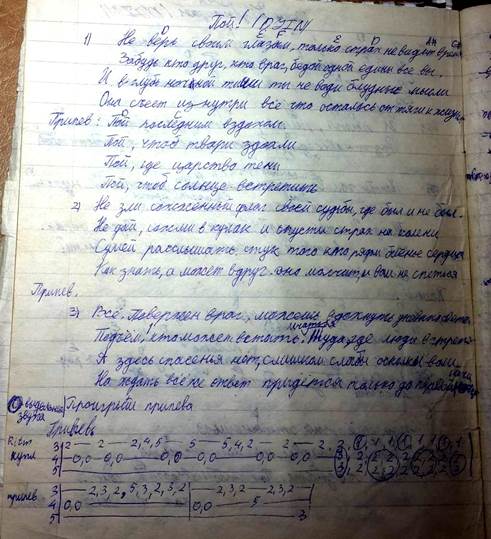 Пой! (РУIN)
1) Не верь своим глазам, только страх не видят
Забудь кто друг, кто враг, бедой одной едины все вы.
И вглубь ночной тиши ты не води блудные мысли
Она съест изнутри всё что осталось от тяги к жизни
Припев: Пой последним вздохом
Пой, чтоб твари сдохли
Пой, где царство тени
Пой, чтоб солнце встретили
2) Не зли сожжённый флаг своей судьбы, где был и не был.
Не дай, сожми в кулак и спусти страх на колени
Сумей расслышать стук того кто рядом сердце
Как знать, а может вдруг оно молчит, и вам не спеться
Припев.
3) Всё. Повержен враг, можешь вдохнуть
Подъём, кто может встать. Туда, где люди
А здесь спасенья нет, слишком слабы осколки воли
Но ждать всё же ответ придётся только до
звука Проигрыш припева
Припевы
Купл 3 2 — 2 — 2,4,5 — 5 — 5,4,2 — 2 — 2, 2
4 0,0 — 0,0 — 0,0 — 0,0 — 0,0 — 0,0
5
припев 3 — 2,3,2,5,3,2,3,2 — 2,3,2 — 2,3,2
4 0,0 — 0,0 — 5
5 — 3